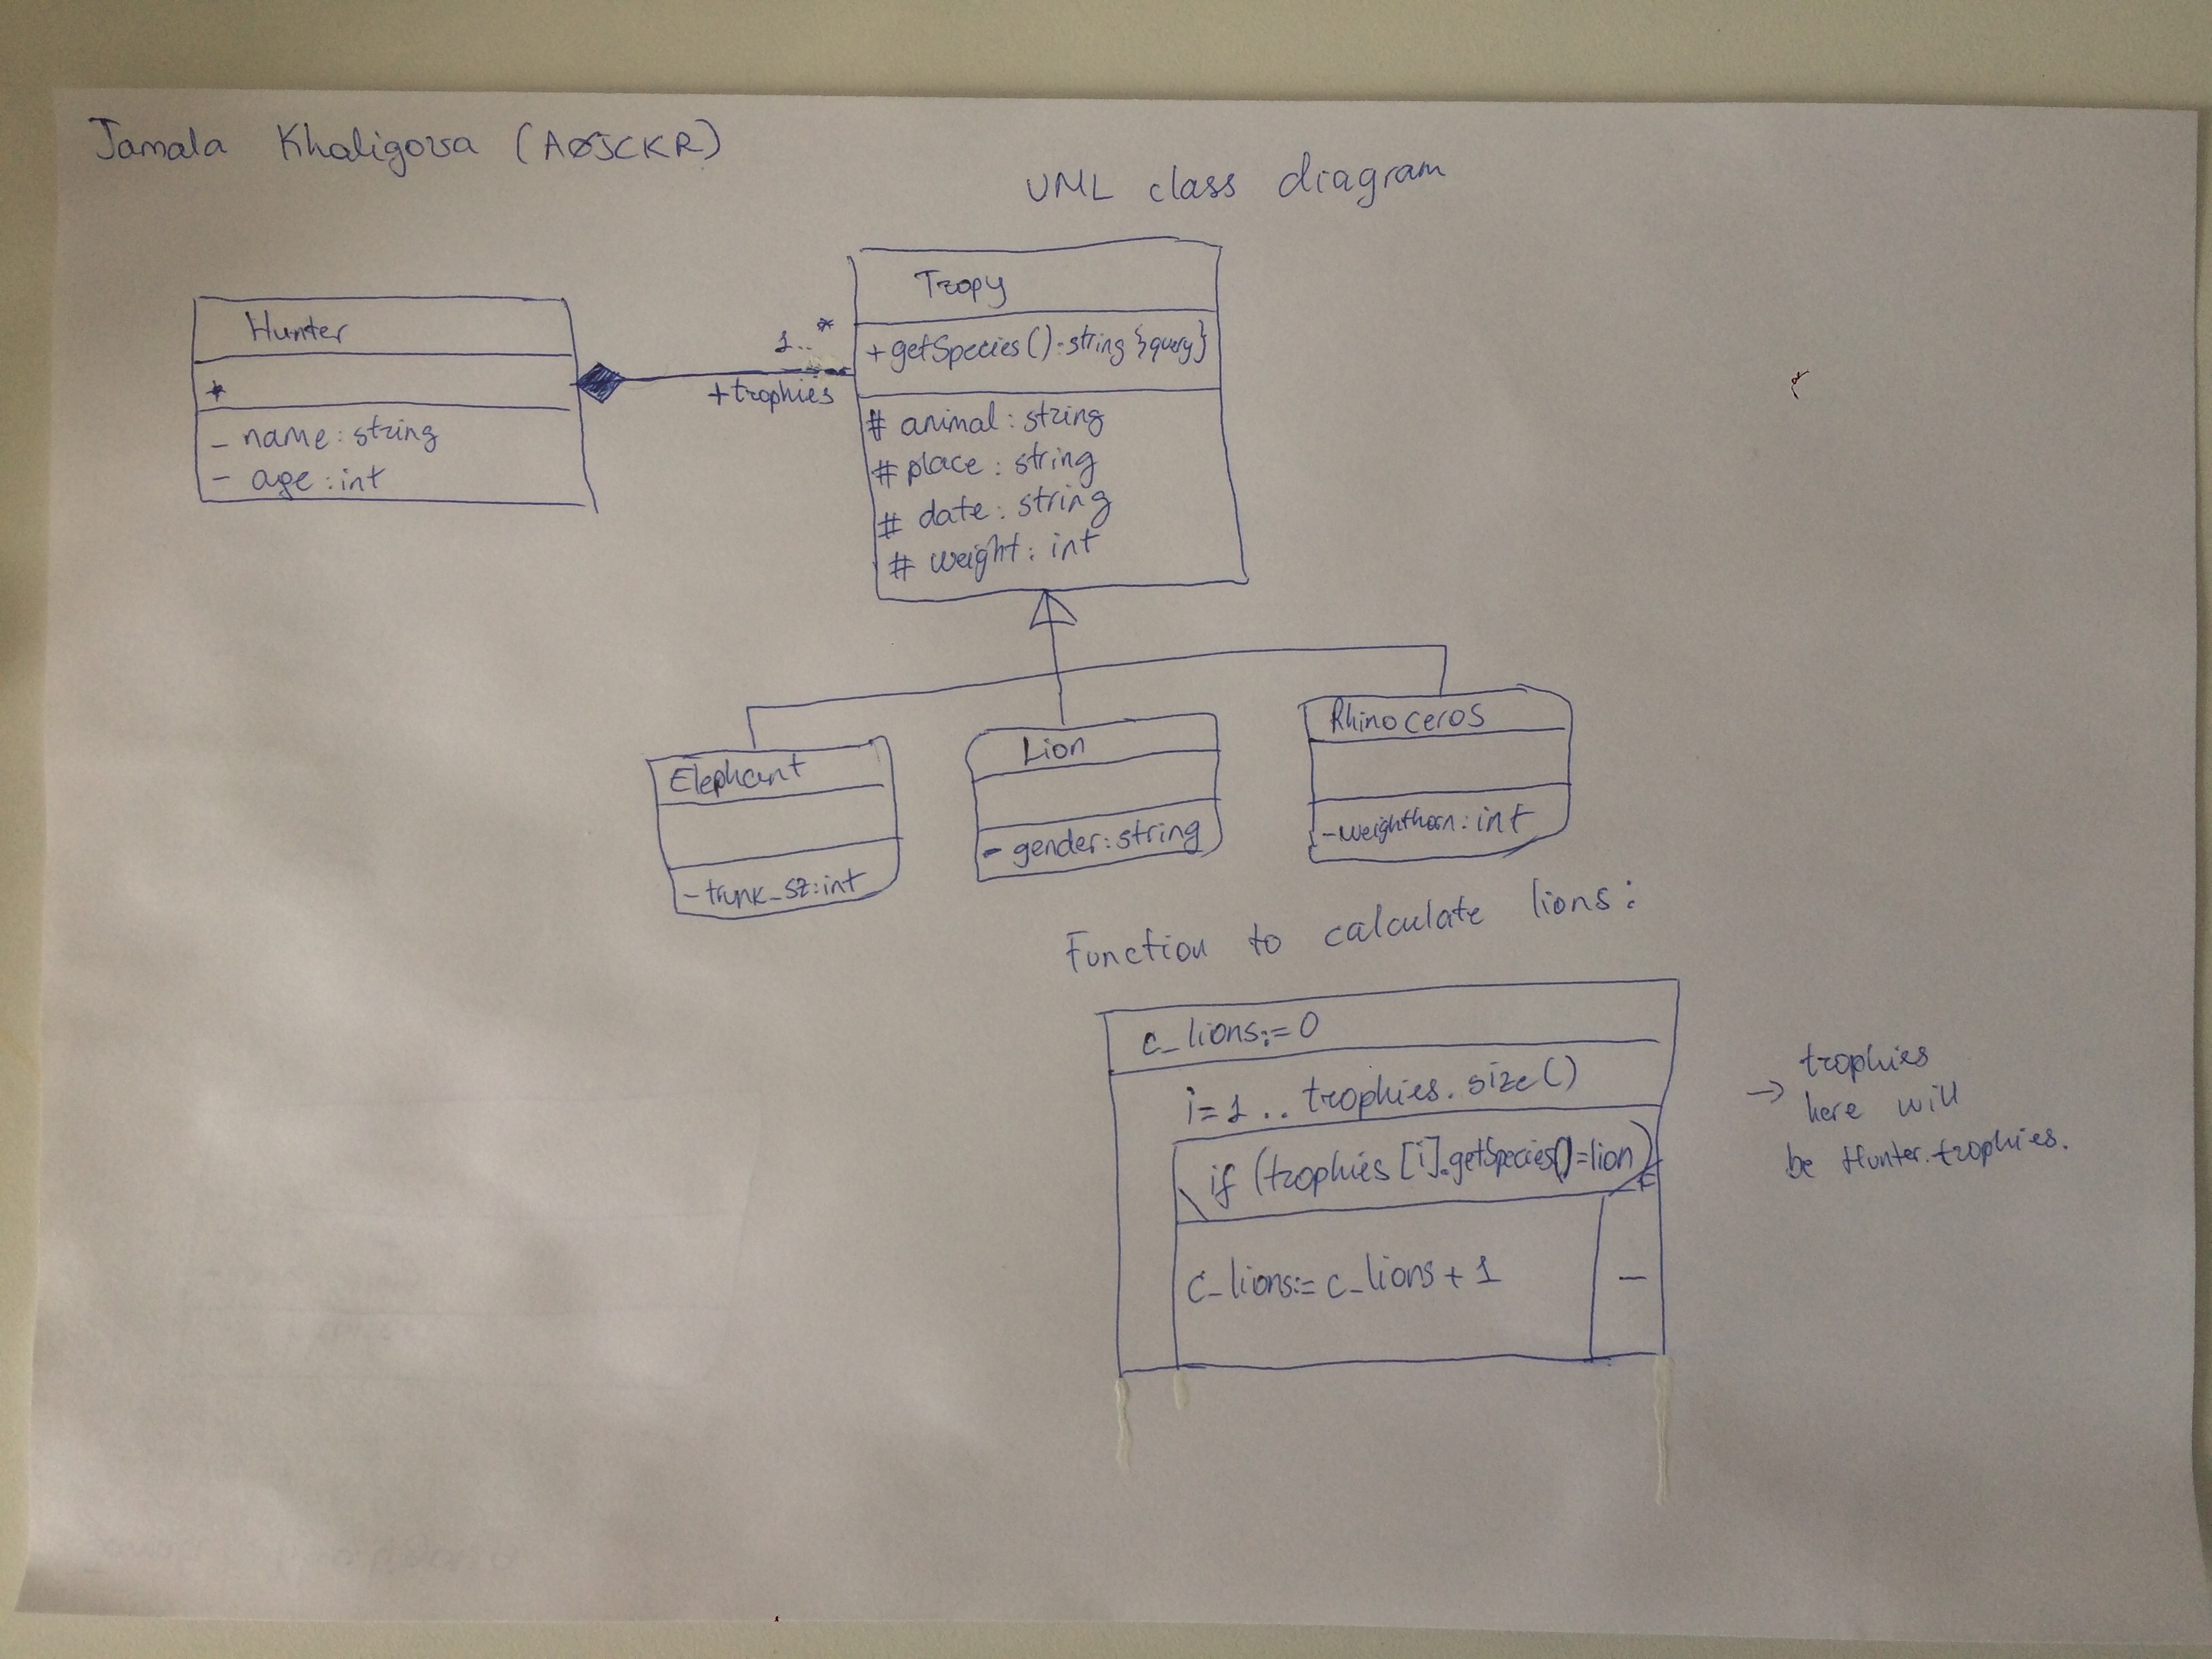 Jamala Khaligova (AØJCKR)
UML class diagram
Hunter
*
- name: string
- age: int
1..*
+trophies
Tropy
+getSpecies(): string {query}
# animal: string
# place: string
# date: string
# weight: int
Elephant
- trunk_sz: int
Lion
- gender: string
Rhinoceros
- weighthorn: int
Function to calculate lions:
c_lions:=0
i=1 .. trophies.size()
if (trophies[i].getSpecies()=lion)
F
c_lions:= c_lions + 1
—
→ trophies
here will
be Hunter.trophies.